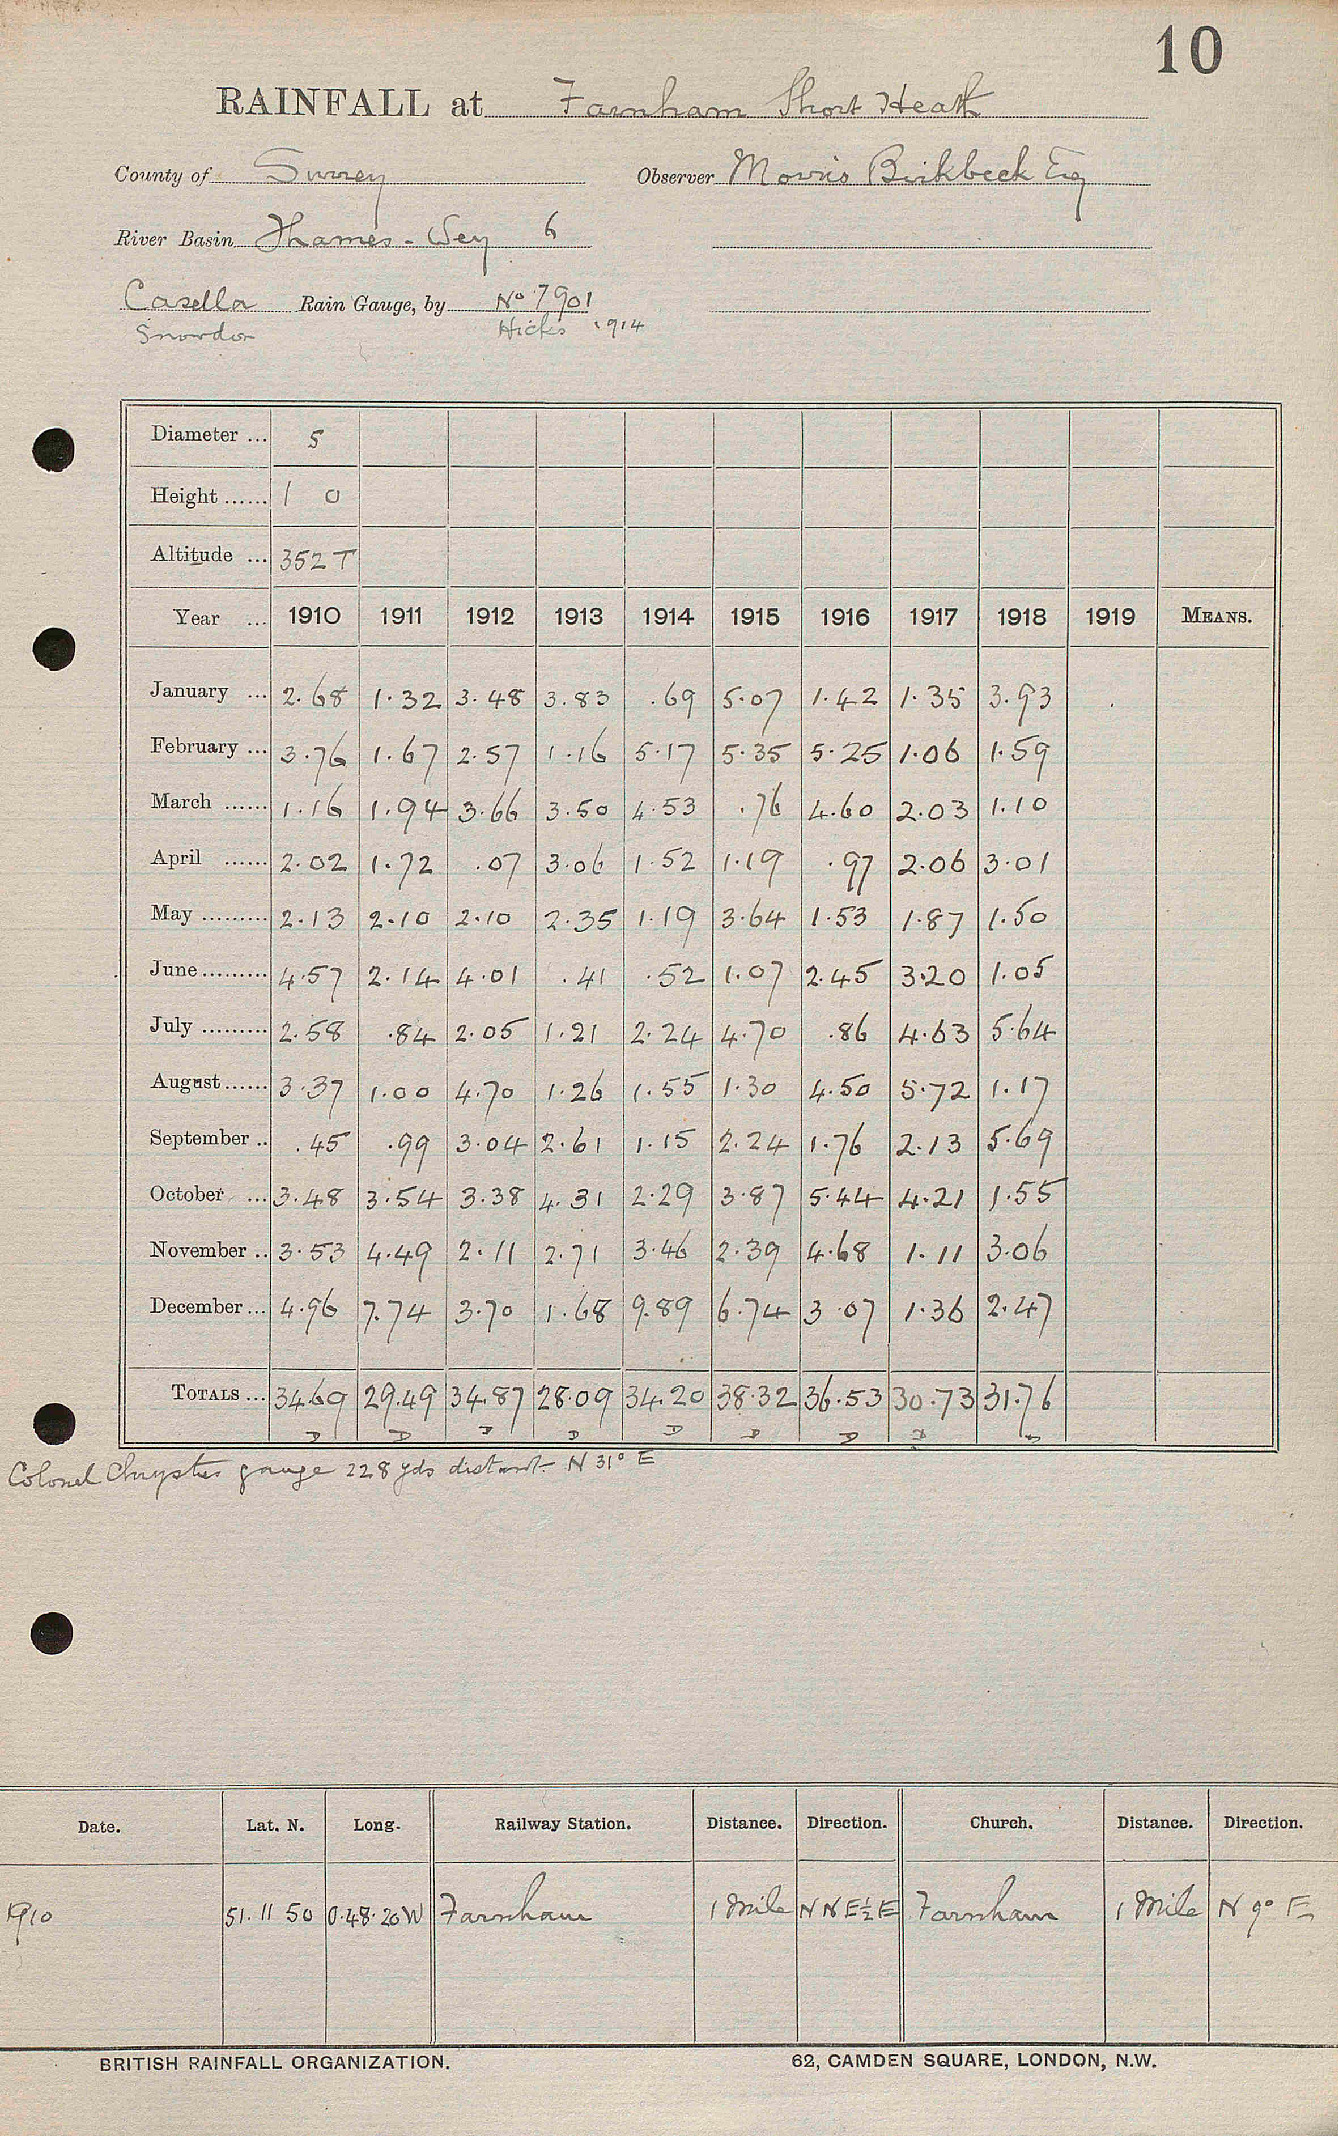 10
RAINFALL at Farnham Short Heath
County of Surrey Observer Morris Birkbeck Esq
River Basin Thames - Wey 6
Casella Rain Gauge, by No 7901
Snowdon Hicks 1914
Diameter ... 5
Height ...... 1 0
Altitude ... 352 T
Year ... 1910 1911 1912 1913 1914 1915 1916 1917 1918 1919 MEANS.
January ... 2.68 1.32 3.48 3.83 .69 5.07 1.42 1.35 3.93
February ... 3.76 1.67 2.57 1.16 5.17 5.35 5.25 1.06 1.59
March ...... 1.16 1.94 3.66 3.50 4.53 .76 4.60 2.03 1.10
April ...... 2.02 1.72 .07 3.06 1.52 1.19 .97 2.06 3.01
May ......... 2.13 2.10 2.10 2.35 1.19 3.64 1.53 1.87 1.50
June ......... 4.57 2.14 4.01 .41 .52 1.07 2.45 3.20 1.05
July ......... 2.58 .84 2.05 1.21 2.24 4.70 .86 4.63 5.64
August ...... 3.37 1.00 4.70 1.26 1.55 1.30 4.50 5.72 1.17
September .. .45 .99 3.04 2.61 1.15 2.24 1.76 2.13 5.69
October ... 3.48 3.54 3.38 4.31 2.29 3.87 5.44 4.21 1.55
November .. 3.53 4.49 2.11 2.71 3.46 2.39 4.68 1.11 3.06
December ... 4.96 7.74 3.70 1.68 9.89 6.74 3 07 1.36 2.47
TOTALS ... 34.69 29.49 34.87 28.09 34.20 38.32 36.53 30.73 31.76
D D D D D D D D D
Colonel gauge 228 yds distant N 31° E
Date. Lat. N. Long. Railway Station. Distance. Direction. Church. Distance. Direction.
1910 51. 11 50 0.48.20W Farnham 1 Mile N N E ½ E Farnham 1 Mile N 9° E
BRITISH RAINFALL ORGANIZATION. 62, CAMDEN SQUARE, LONDON, N.W.